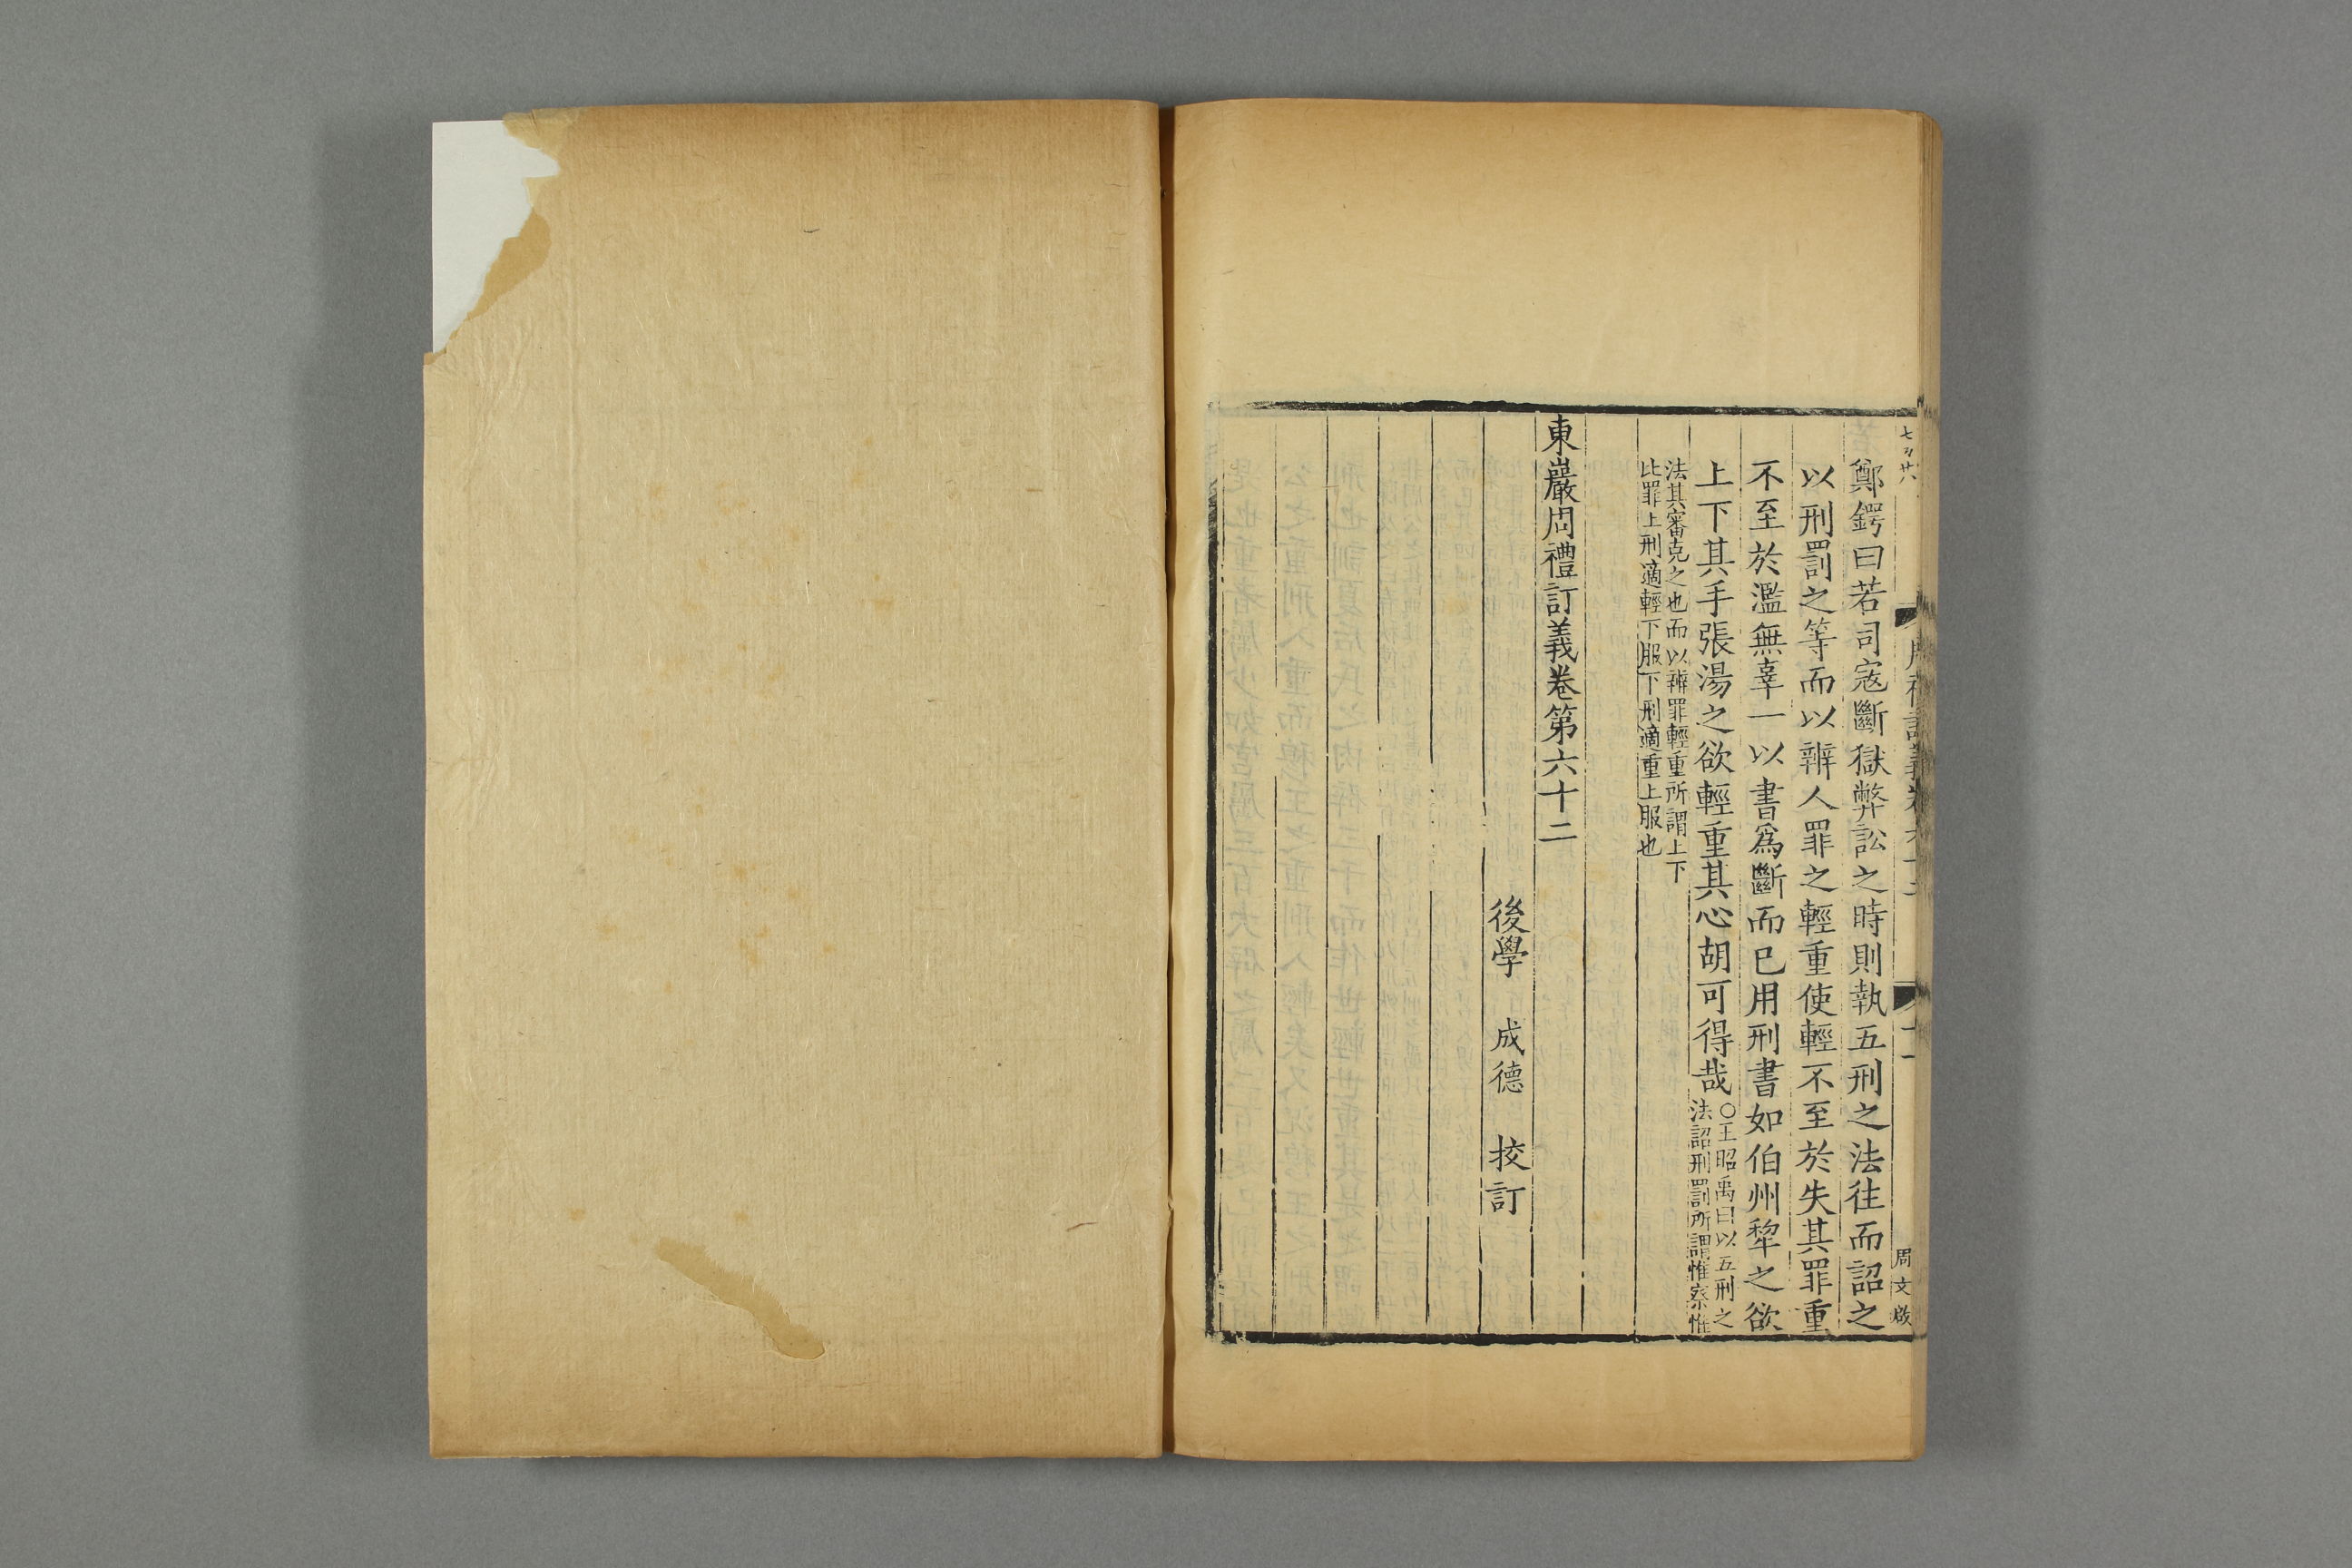 鄭鍔曰若司寇斷獄弊訟之時則執五刑之法往而詔之
以刑罰之等而以辨人罪之輕重使輕不至於失其罪重
不至於濫無辜一以書爲斷而已用刑書如伯州犂之欲
上下其手張湯之欲輕重其心胡可得哉○王昭禹曰以五刑之
法詔刑罰所謂惟察惟
法其審克之也而以辨罪輕重所謂上下
比罪上刑適輕下服下刑適重上服也
東巖周禮訂義卷第六十二
後學 成德 挍訂
周文啟